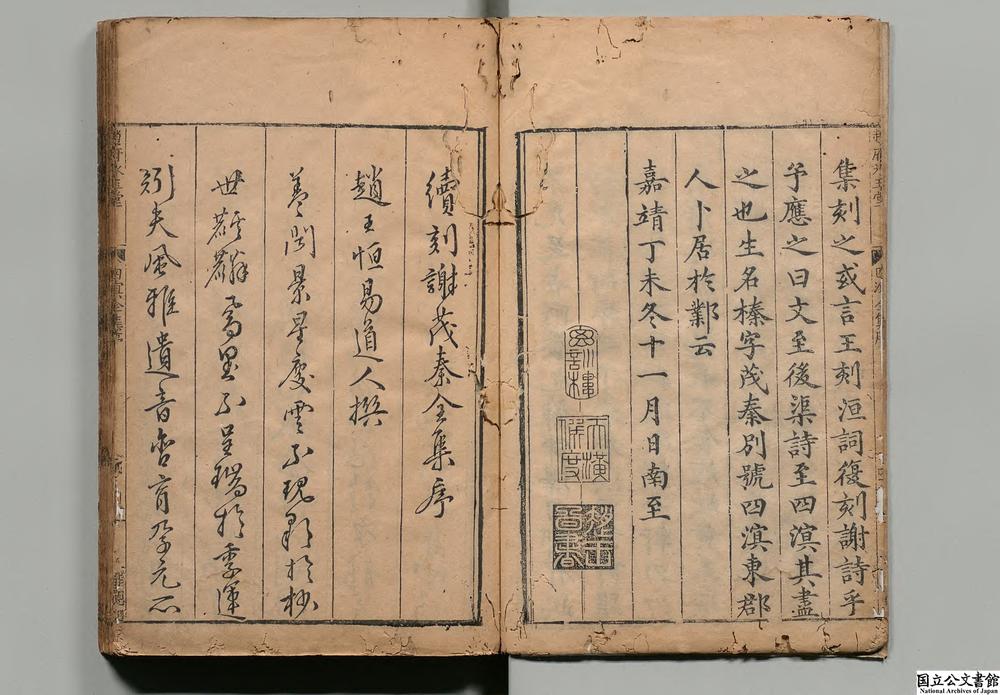 集刻之或言王刻洹詞復刻謝詩乎
予應之曰文至後渠詩至四溟其盡
之也生名榛字茂秦別號四溟東郡
人卜居於鄴云
嘉靖丁未冬十一月日南至
續刻謝茂秦全集序
趙王恒易道人撰
蓋聞景星慶雲不現彩於杪
世麒麟鳶里不呈瑞於季運
矧夫風雅遺音密育孕元
国立公文書館
National Archives of Japan